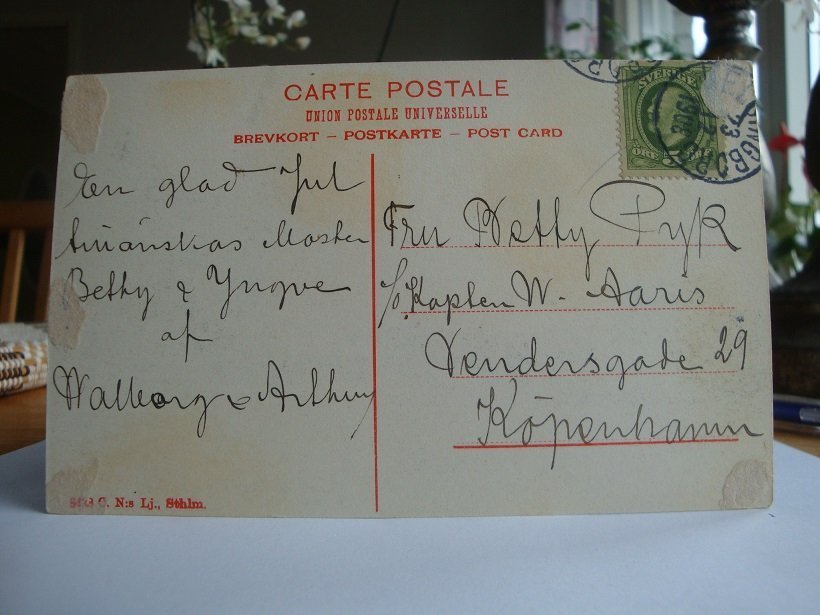 CARTE POSTALE
UNION POSTALE UNIVERSELLE
BREVKORT – POSTKARTE – POST CARD
SVERIGE
En glad Jul
tillönskas Moster
Betty & Yngve
af
Walborg & Arthur
Fru Betty Pyk
c/o Kapten W. Aaris
Vendersgade 29
Köpenhamn
G. N:s Lj., Sthlm.